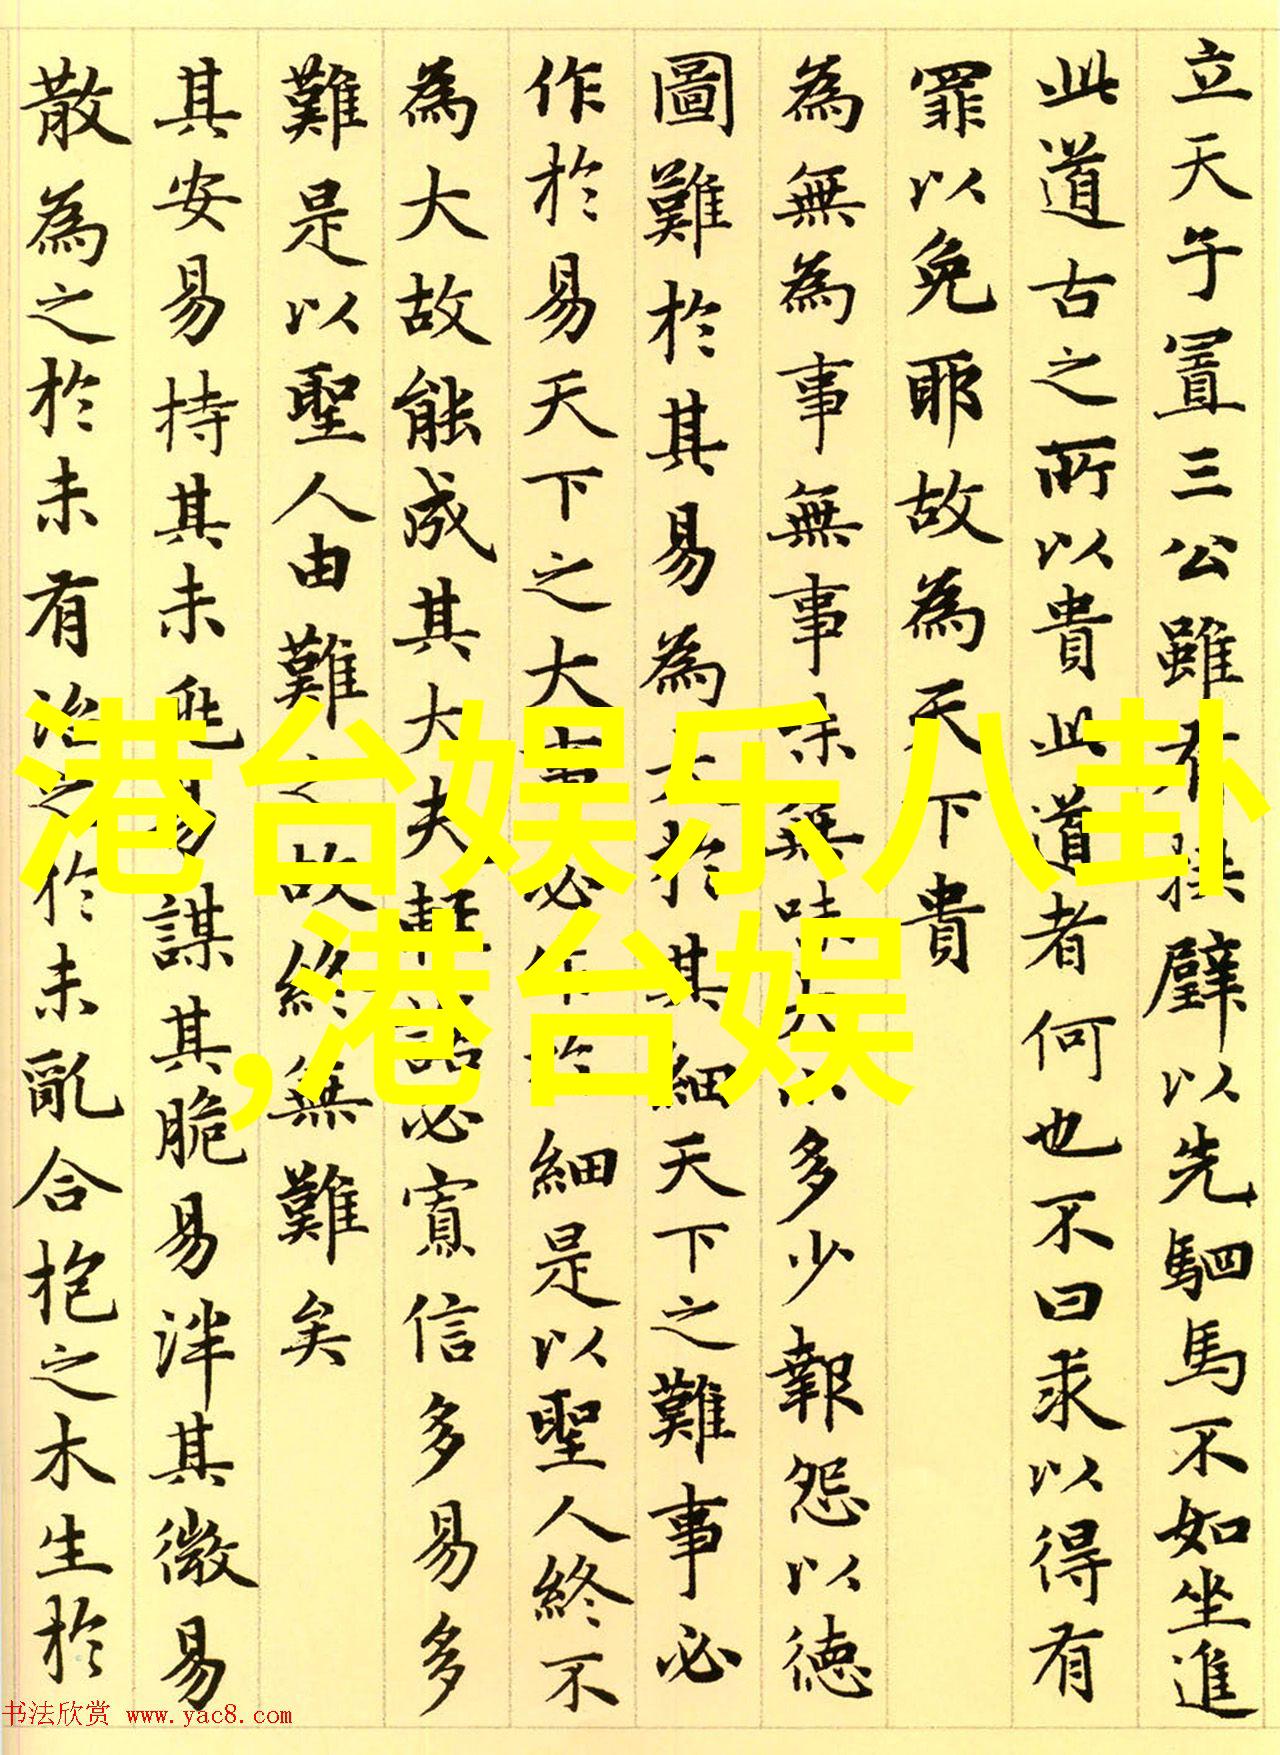 立天子置三公雖有拱璧以先駟馬不如坐進
此道古之所以貴此道者何也不曰求以得有
罪以免耶故為天下貴
為無為事無事味無味大小多少報怨以德
圖難於其易為大於其細天下之難事必
作於易天下之大事必作於細是以聖人終不
為大故能成其大夫輕諾必寡信多易多
難是以聖人由難之故終無難矣
其安易持其未兆易謀其脆易泮其微易
散為之於未有治之於未亂合抱之木生於
港台娱乐八卦
,港台娱
书法欣赏 www.yac8.com